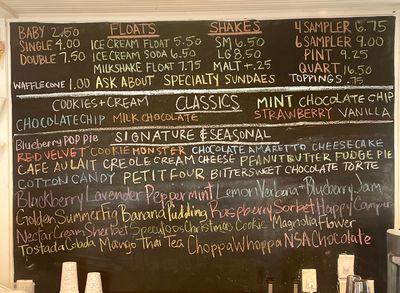 BABY 2.50 FLOATS SHAKES 4 SAMPLER 6.75
SINGLE 4.00 ICE CREAM FLOAT 5.50 SM 6.50 6 SAMPLER 9.00
DOUBLE 7.50 ICE CREAM SODA 6.50 LG 8.50 PINT 9.25
MILKSHAKE FLOAT 7.75 MALT +.25 QUART 16.50
WAFFLE CONE 1.00 ASK ABOUT SPECIALTY SUNDAES TOPPINGS .75
COOKIES + CREAM CLASSICS MINT CHOCOLATE CHIP
CHOCOLATE CHIP MILK CHOCOLATE STRAWBERRY VANILLA
SIGNATURE & SEASONAL
Blueberry POP PIE
RED VELVET COOKIE MONSTER CHOCOLATE AMARETTO CHEESECAKE
CAFE AU LAIT CREOLE CREAM CHEESE PEANUT BUTTER FUDGE PIE
COTTON CANDY PETIT FOUR BITTERSWEET CHOCOLATE TORTE
Blackberry Lavender Peppermint Lemon Verbena Blueberry Jam
Golden Summer Fig Banana Pudding Raspberry Sorbet Happy Camper
Nectar Cream Sherbet Speculoos Christmas Cookie Magnolia Flower
Tostada Colada Mango Thai Tea Choppa Whoppa NSA Chocolate